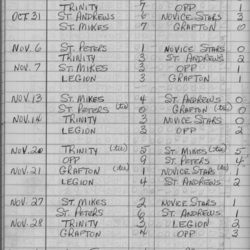 TRINITY 7 OPP 1
OCT. 31 ST. ANDREWS 6 NOVICE STARS 3
ST. MIKES 7 GRAFTON 0
NOV. 6 ST. PETERS 1 NOVICE STARS 0
TRINITY 3 ST. ANDREWS 2
NOV. 7 ST. MIKES 3 OPP 1
LEGION 3 GRAFTON
NOV. 13 ST. MIKES 4 ST. ANDREWS 0
ST. PETERS 0 GRAFTON 0
NOV. 14 TRINITY 3 NOVICE STARS 0
LEGION 3 OPP 2
NOV. 20 TRINITY 5 ST. MIKES 5
OPP 9 ST. PETERS 4
NOV. 21 GRAFTON 1 NOVICE STARS
LEGION 4 ST. ANDREWS 2
NOV. 27 ST. MIKES 2 NOVICE STARS 1
ST. PETERS 6 ST. ANDREWS 1
NOV. 28 TRINITY 3 LEGION 2
GRAFTON 4 OPP 3